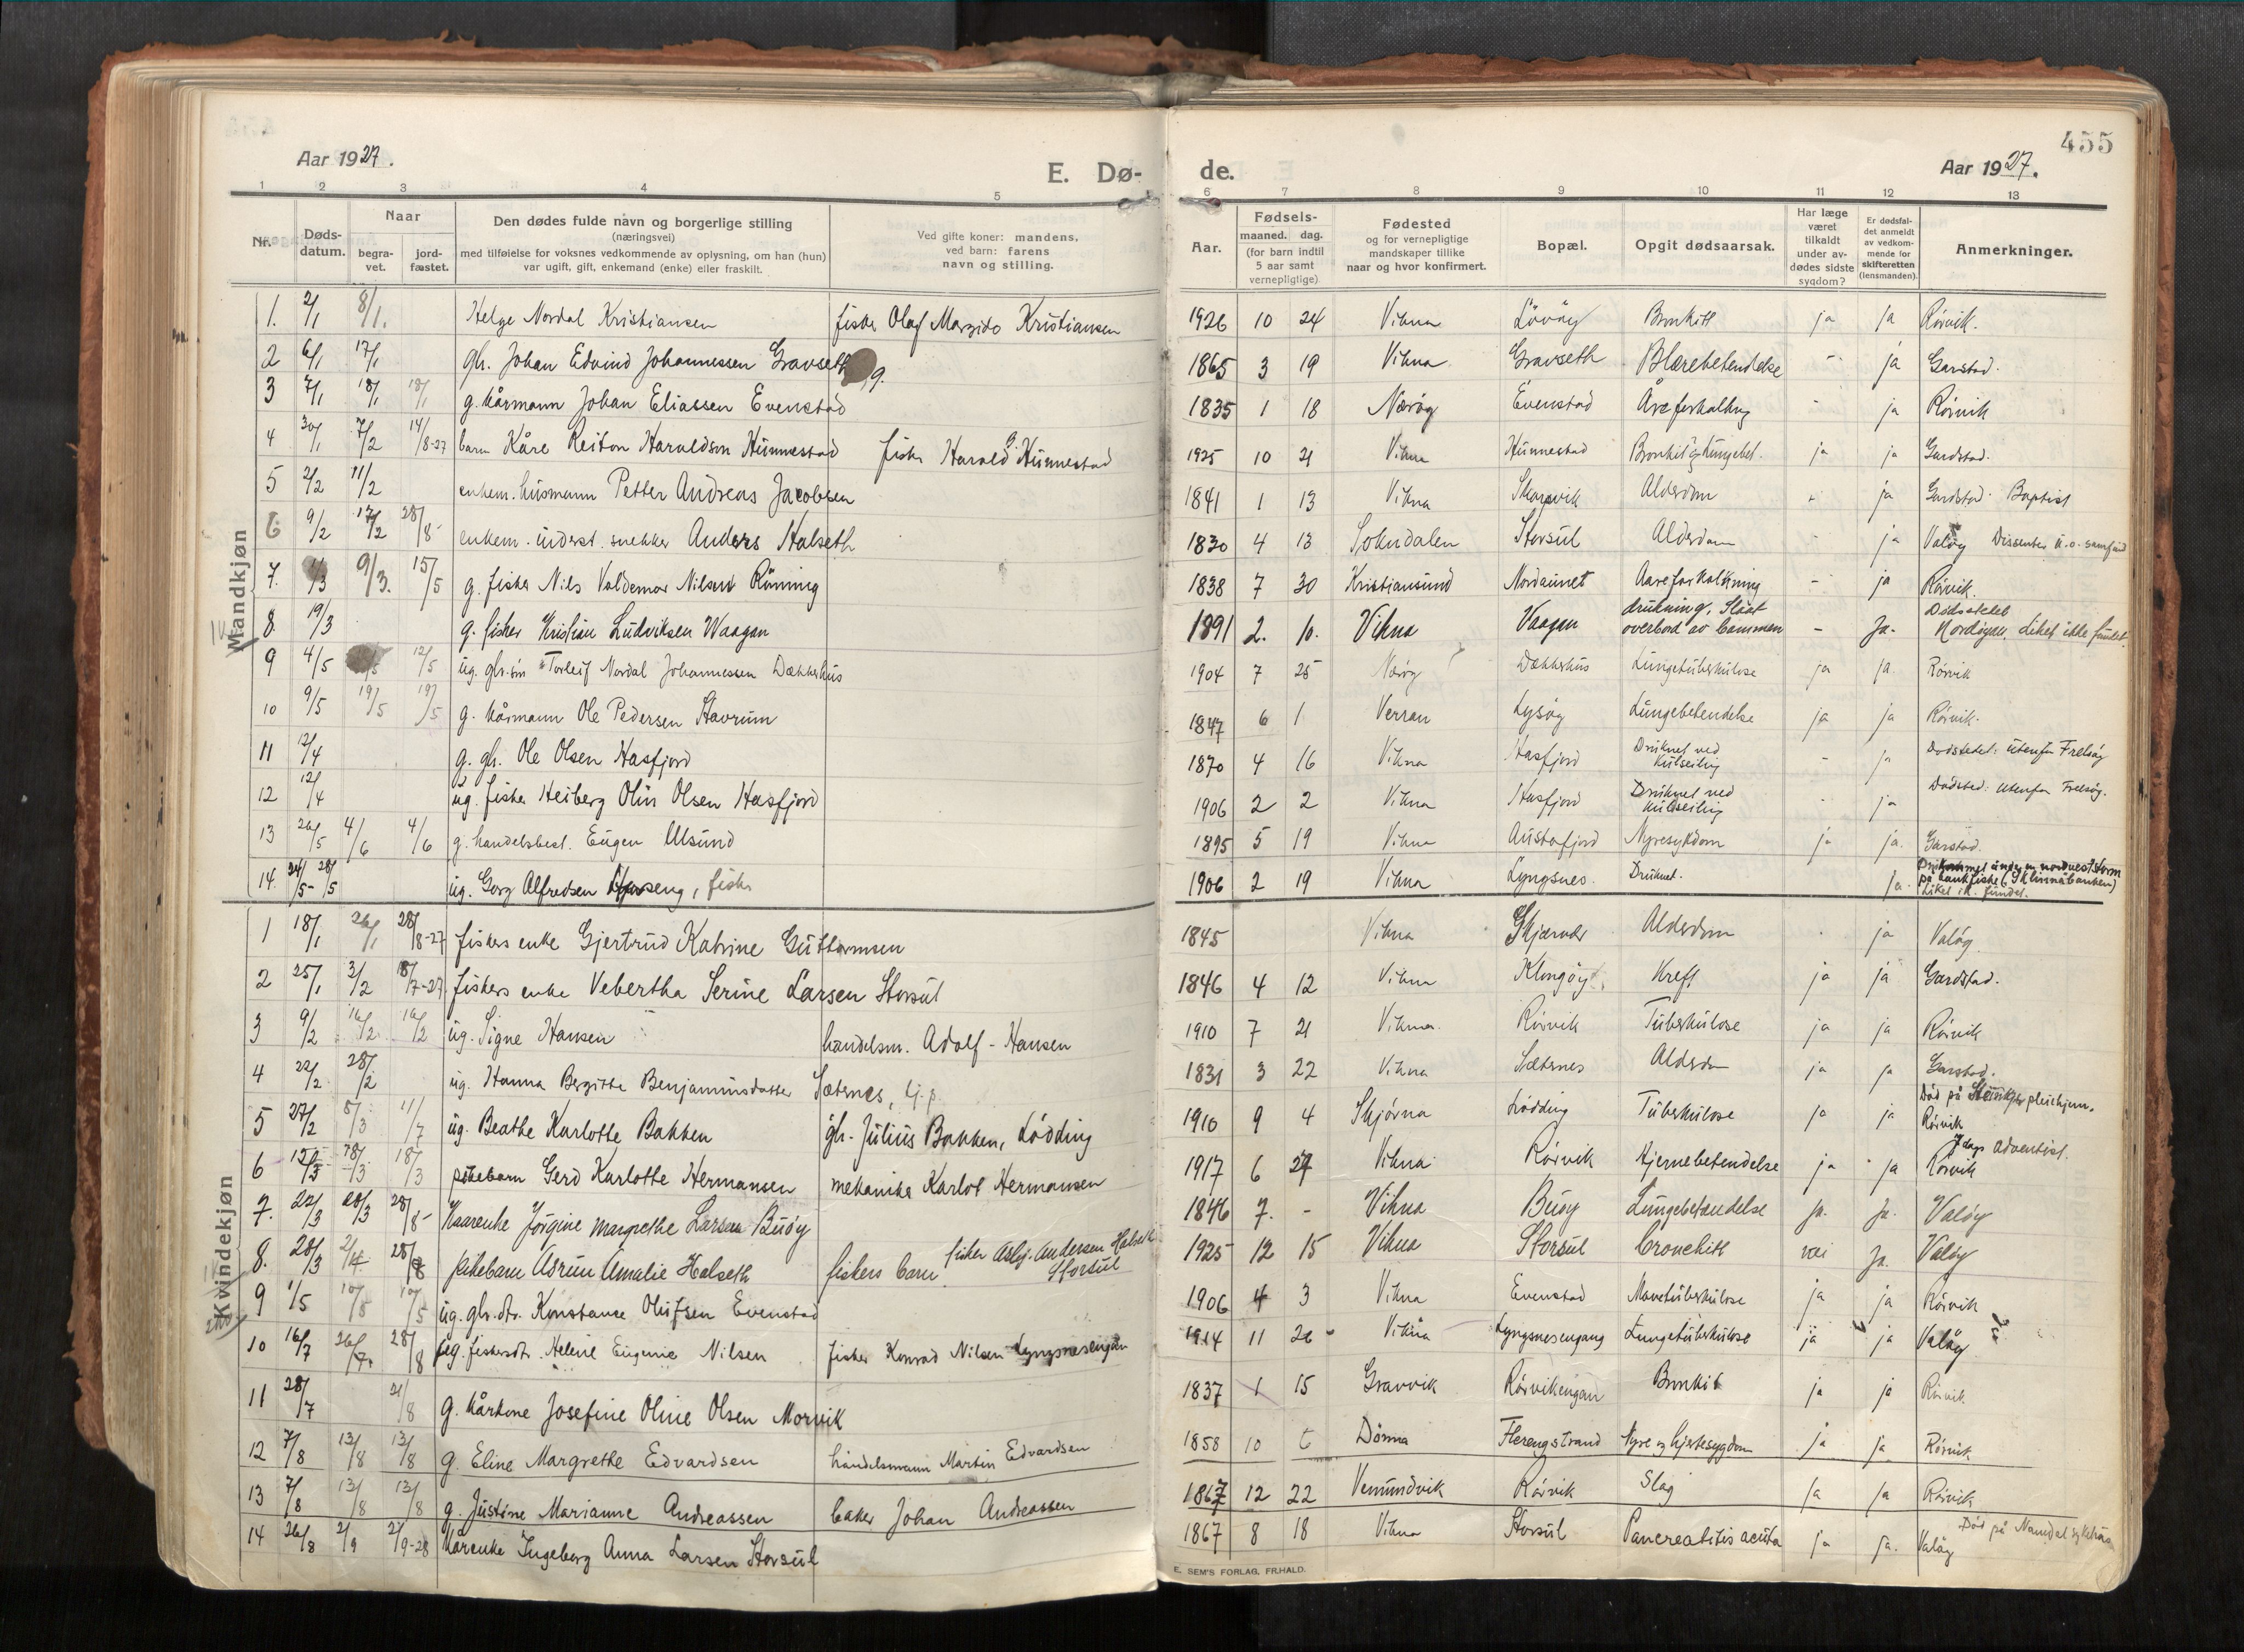 455
Aar 1927.
E. Dø-
de.
Aar 1927.
1 2 3 4 5 6 7 8 9 10 11 12 13
Nr.
Døds-
datum.
Naar
begra-
vet.
jord-
fæstet.
Den dødes fulde navn og borgerlige stilling
(næringsvei)
med tilføielse for voksnes vedkommende av oplysning, om han (hun)
var ugift, gift, enkemand (enke) eller fraskilt.
Ved gifte koner: mandens,
ved barn: farens
navn og stilling.
Aar.
Fødsels-
maaned. dag.
(for barn indtil
5 aar samt
vernepligtige)
Fødested
og for vernepligtige
mandskaper tillike
naar og hvor konfirmert.
Bopæl.
Opgit dødsaarsak.
Har læge
været
tilkaldt
under av-
dødes sidste
sygdom?
Er dødsfal-
det anmeldt
av vedkom-
mende for
skifteretten
(lensmanden).
Anmerkninger.
Mandkjøn
1. 2/1 8/1. Helge Nordal Kristiansen fisker Olaf Margido Kristiansen 1926 10 24 Vikna Lövöy Bronkitt ja ja Rörvik.
2 6/1 17/1 gbr. Johan Edvind Johannessen Gravseth g. 1865 3 19 Vikna Gravseth Blærebetendelse - ja Garstad.
3 7/1 18/1 18/1 g. kårmann Johan Eliassen Evenstad 1835 1 18 Nærøy Evenstad Åreforkalkng - ja Rörvik
4 30/1 7/2 14/8-27 barn Kåre Reiton Haraldson Hunnestad fisker Harald G. Hunnestad 1925 10 21 Vikna Hunnestad Bronkit og lungebet. ja ja Gardstad.
5 2/2 11/2 enkem. husmann Petter Andreas Jacobsen 1841 1 13 Vikna Skarvik Alderdom - ja Gardstad. Baptist
6 9/2 17/2 28/8- enkem. inderst. snekker Anders Halseth 1830 4 13 Sokndalen Storsul Alderdom - ja Valöy Dissenter u.o. samfund
7. 1/3 9/3. 15/5 g. fisker Nils Valdemar Nilsen Röning 1838 7 30 Kristiansund Nordaunet Aareforkalkning - ja Rörvik.
8. 19/3 g. fisker Kristian Ludviksen Waagan 1891 2. 10. Vikna Vaagan drukning. Slaat overbord av bommen - Ja. Dødsstedet Nordöyan. Liket ikke fundet.
9 4/5 12/5 ug. gbr.sön Torleif Nordal Johannessen Dækkerhus 1904 7 25 Nærøy Dækkerhus Lungetuberkulose ja ja. Rörvik
10 9/5 19/5 19/5 g. kårmann Ole Pedersen Stavrum 1847 6 1 Verran Lysöy Lungebetendelse ja ja Rörvik.
11 12/4 g. gbr. Ole Olsen Hasfjord 1870 4 16 Vikna Hasfjord Druknet ved kulseiling - ja Dødsstedet: utenfor Frelsöy
12 12/4 ug. fisker Heiberg Olin Olsen Hasfjord 1906 2 2 Vikna Hasfjord Druknet ved kulseiling - ja Dødsted: utenfor Frelsöy.
13 26/5 4/6 4/6 g. handelsbest. Eugen Ulsund 1895 5 19 Vikna Austafjord Nyresykdom ja ja. Garstad.
14. 24/5- 28/5 ug. Georg Alfredsen , fisker 1906 2 19 Vikna Lyngsnes Druknet. ja. Druknet under en nordvest storm på bankfiske (Sklinnabanken) Liket ik. fundet.
Kvindekjøn
1 18/1 26/1 28/8-27 fiskers enke Gjertrud Katrine Guttormsen 1845 Vikna Skjærvær Alderdom - ja Valöy.
2 25/1 3/2 18/7-27 fiskers enke Vebertha Serine Larsen Storsul 1846 4 12 Vikna Klungöy Kreft ja ja Gardstad.
3 9/2 16/2 16/2 ug. Signe Hansen handelsm. Adolf Hansen 1910 7 21 Vikna. Rörvik Tuberkulose ja ja Rörvik
4 22/2 28/2 ug. Hanna Bergitte Benjaminsdatter Sæternes, tj.p. 1831 3 22 Vikna Sæternes Alderdom ja ja Garstad.
5 27/2 8/3 11/7 ug. Beathe Karlotte Bakken gbr. Julius Bakken, Lödding 1910 9 4 Skjörna Lödding Tuberkulose ja ja Död på Steinkjer pleiehjem. Rörvik
6 12/3 18/3 18/3 pikebarn Gerd Karlotte Hermansen mekaniker Karlot Hermansen 1917 6 27 Vikna Rörvik Hjernebetendelse ja ja 7 dags adventist. Rörvik
7. 22/3 28/3 28/8- Kaarenke Jörgine Margrethe Larsen Buöy 1846 7. - Vikna Buöy Lungebetændelse ja. ja. Valöy
8. 28/3 2/4. 28/8 pikebarn Asrun Amalie Halseth fiskers barn fisker Asbj. Andersen Halseth Storsul 1925 12 15 Vikna Storsul bronchitt nei ja. Valöy
9 1/5 10/5 10/5 ug. gbr.dtr. Konstanse Olufsen Evenstad 1906 4 3 Vikna Evenstad Mavetuberkulose ja ja Rörvik
10 16/7 26/7. 28/8 ug. fiskersdtr. Helene Eugenie Nilsen fisker Konrad Nilsen Lyngsnesengan 1914 11 26 Vikna Lyngsnesengang Lungetuberkulose ja ja Valöy
11 28/7 21/8 g. kårkone Josefine Oline Olsen Morvik 1837 1 15 Gravvik Rörvikengan Bronkit ja ja Rörvik.
12 7/8 13/8 13/8 g. Eline Margrethe Edvardsen handelsmann Martin Edvardsen 1858 10 6 Dönna Flerengstrand Nyre og hjertesygdom ja ja Rörvik
13 7/8 13/8 13/8 g. Justine Marianne Andreassen baker Johan Andreassen 1867 12 22 Vemundvik Rörvik Slag ja ja Rörvik
14 26/8 2/9 2/9-28 Kårenke Ingeborg Anna Larsen Storsul 1867 8 18 Vikna Storsul Pancreatitis acuta ja ja. Død på Namdal sykehus Valöy
E. SEM'S FORLAG, FR.HALD.